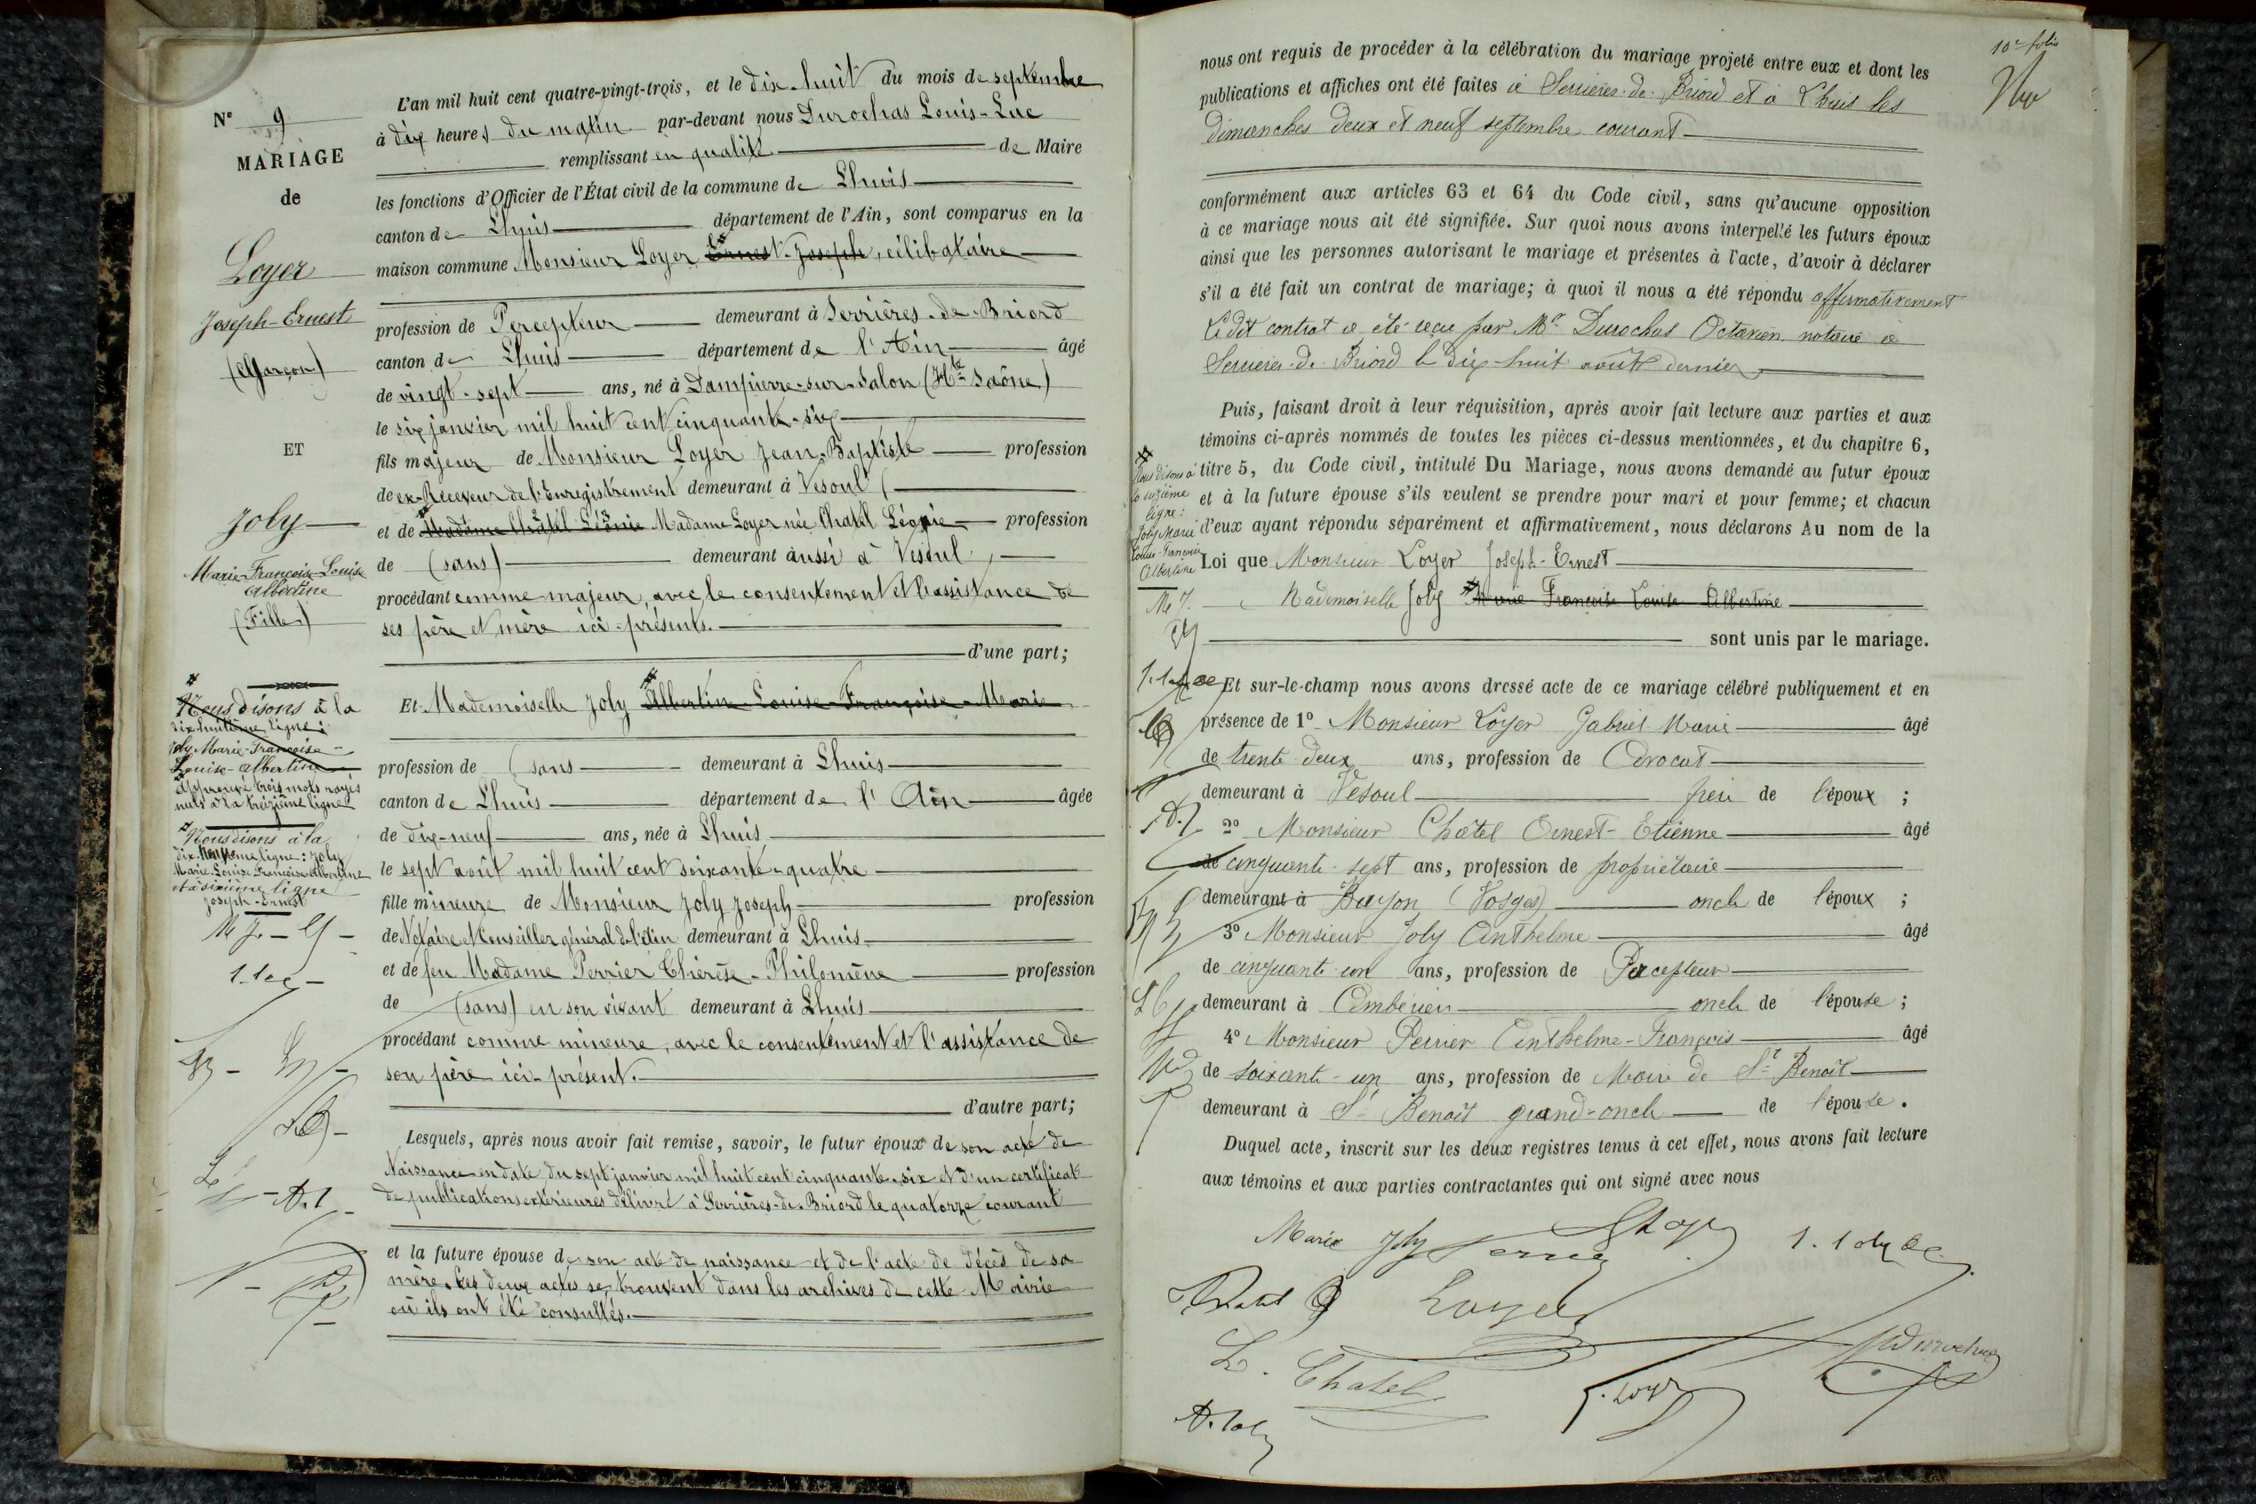 N° 9
MARIAGE
de
Loyer
Joseph-Ernest
(Garçon)
ET
Joly
Marie-Françoise-Louise
Albertine
(Fille)
Nous disons à la
dix huitième ligne :
Joly Marie-Françoise-
Louise-Albertine
Approuvé trois mots rayés
nuls à la treizième ligne
Nous disons à la
ligne : Joly
Marie-Louise-Françoise-Albertine
et à sixième ligne
Joseph-Ernest
L'an mil huit cent quatre-vingt-trois, et le dix-huit du mois de septembre
à dix heures du matin par-devant nous Durochas Louis-Luc
remplissant en qualité de Maire
les fonctions d'Officier de l'État civil de la commune de Lhuis
canton de Lhuis département de l'Ain, sont comparus en la
maison commune Monsieur Loyer Ernest-Joseph, célibataire
profession de Percepteur demeurant à Serrières-de-Briord
canton de Lhuis département de l'Ain âgé
de vingt-sept ans, né à Dampierre-sur-Salon (Hte Saône)
le six janvier mil huit cent cinquante-six
fils majeur de Monsieur Loyer Jean-Baptiste profession
de ex-Receveur de l'Enregistrement demeurant à Vesoul
et de Madame Châtel Léonie Madame Loyer née Chatel Léonie profession
de (sans) demeurant aussi à Vesoul,
procédant comme majeur, avec le consentement et l'assistance de
ses père et mère ici-présents.
d'une part;
Et Mademoiselle Joly Albertin-Louise-Françoise-Marie
profession de (sans demeurant à Lhuis
canton de Lhuis département de l'Ain âgée
de dix-neuf ans, née à Lhuis
le sept août mil huit cent soixante-quatre
fille mineure de Monsieur Joly Joseph profession
de Notaire et Conseiller général de l'Ain demeurant à Lhuis
et de feu Madame Perrier Thérèse-Philomène profession
de (sans) en son vivant demeurant à Lhuis
procédant comme mineure, avec le consentement et l'assistance de
son père ici-présent.
d'autre part;
Lesquels, après nous avoir fait remise, savoir, le futur époux de son acte de
Naissance en date du sept janvier mil huit cent cinquante-six et d'un certificat
de publications extérieures délivré à Serrières-de-Briord le quatorze courant
et la future épouse de son acte de naissance et de l'acte de décès de sa
mère. Ces deux actes se trouvent dans les archives de cette Mairie
où ils ont été consultés.
10e folio
nous ont requis de procéder à la célébration du mariage projeté entre eux et dont les
publications et affiches ont été faites à Serrières-de-Briord et à Lhuis les
dimanches deux et neuf septembre courant
conformément aux articles 63 et 64 du Code civil, sans qu'aucune opposition
à ce mariage nous ait été signifiée. Sur quoi nous avons interpellé les futurs époux
ainsi que les personnes autorisant le mariage et présentes à l'acte, d'avoir à déclarer
s'il a été fait un contrat de mariage; à quoi il nous a été répondu affirmativement
Le dit contrat a été reçu par Me Durochas Octavien notaire à
Serrières-de-Briord le dix-huit août dernier
Puis, faisant droit à leur réquisition, après avoir fait lecture aux parties et aux
témoins ci-après nommés de toutes les pièces ci-dessus mentionnées, et du chapitre 6,
titre 5, du Code civil, intitulé Du Mariage, nous avons demandé au futur époux
et à la future épouse s'ils veulent se prendre pour mari et pour femme; et chacun
d'eux ayant répondu séparément et affirmativement, nous déclarons Au nom de la
Loi que Monsieur Loyer Joseph-Ernest
Mademoiselle Joly Marie Françoise Louise Albertine
sont unis par le mariage.
Nous disons à
la sixième
ligne :
Joly Marie
Louise-Françoise
Albertine
Et sur-le-champ nous avons dressé acte de ce mariage célébré publiquement et en
présence de 1° Monsieur Loyer Gabriel Marie âgé
de trente deux ans, profession de Avocat
demeurant à Vesoul frère de l'époux ;
2° Monsieur Châtel Ernest-Etienne âgé
de cinquante-sept ans, profession de propriétaire
demeurant à Bayon (Vosges) oncle de l'époux ;
3° Monsieur Joly Anthelme âgé
de cinquante-un ans, profession de Percepteur
demeurant à Ambérieu oncle de l'épouse ;
4° Monsieur Perrier Anthelme-François âgé
de soixante-un ans, profession de Maire de St Benoît
demeurant à St Benoît grand-oncle de l'épouse.
Duquel acte, inscrit sur les deux registres tenus à cet effet, nous avons fait lecture
aux témoins et aux parties contractantes qui ont signé avec nous
Marie Joly
Loyer
L. Chatel
A. Joly